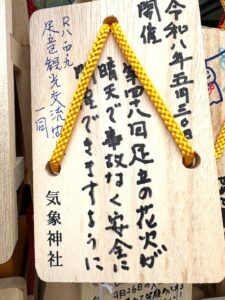 令和八年五月三〇日
開催
第四八回足立の花火が
晴天で事故なく安全に
開催できますように
足立観光交流協
一同
気象神社